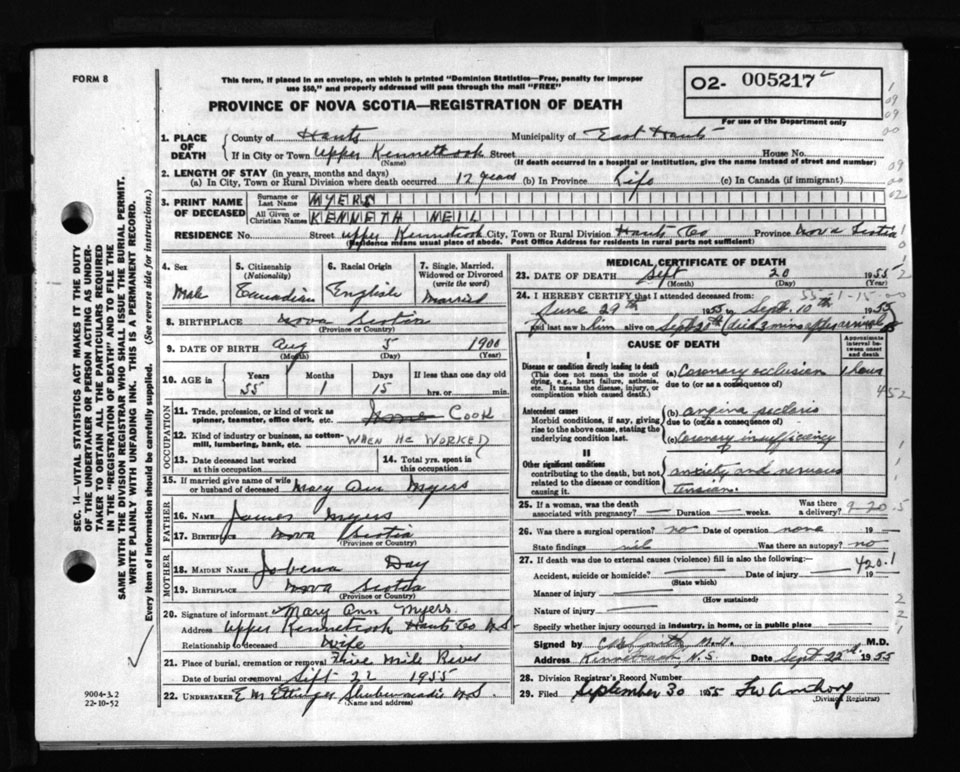 FORM 8
This form, if placed in an envelope, on which is printed "Dominion Statistics—Free, penalty for improper
use $50," and properly addressed will pass through the mail "FREE"
O2- 005217
For use of the Department only
PROVINCE OF NOVA SCOTIA—REGISTRATION OF DEATH
SEC. 14—VITAL STATISTICS ACT MAKES IT THE DUTY
OF THE UNDERTAKER OR PERSON ACTING AS UNDER-
TAKER TO OBTAIN ALL THE PARTICULARS REQUIRED
IN THE "REGISTRATION OF DEATH" AND TO FILE THE
SAME WITH THE DIVISION REGISTRAR WHO SHALL ISSUE THE BURIAL PERMIT.
WRITE PLAINLY WITH UNFADING INK. THIS IS A PERMANENT RECORD.
Every item of information should be carefully supplied. (See reverse side for instructions.)
1. PLACE OF DEATH
County of Hants Municipality of East Hants
If in City or Town Upper Kennetcook Street House No.
(Name) (If death occurred in a hospital or institution, give the name instead of street and number)
2. LENGTH OF STAY (in years, months and days)
(a) In City, Town or Rural Division where death occurred 12 years (b) In Province Life (c) In Canada (if immigrant)
3. PRINT NAME OF DECEASED
Surname or Last Name MYERS
All Given or Christian Names KENNETH NEIL
RESIDENCE No. Street Upper Kennetcook City, Town or Rural Division Hants Co Province Nova Scotia
(Residence means usual place of abode. Post Office Address for residents in rural parts not sufficient)
4. Sex
Male
5. Citizenship (Nationality)
Canadian
6. Racial Origin
English
7. Single, Married, Widowed or Divorced (write the word)
Married
8. BIRTHPLACE Nova Scotia
(Province or Country)
9. DATE OF BIRTH Aug 5 1900
(Month) (Day) (Year)
10. AGE in Years Months Days If less than one day
55 1 15 hrs. or min.
OCCUPATION
11. Trade, profession, or kind of work as
spinner, teamster, office clerk, etc. COOK
12. Kind of industry or business, as cotton-
mill, lumbering, bank, etc. WHEN HE WORKED
13. Date deceased last worked
at this occupation
14. Total yrs. spent in
this occupation
15. If married give name of wife
or husband of deceased Mary Ann Myers
FATHER
16. NAME James Myers
17. BIRTHPLACE Nova Scotia
(Province or Country)
MOTHER
18. MAIDEN NAME Jobena Day
19. BIRTHPLACE Nova Scotia
(Province or Country)
20. Signature of informant Mary Ann Myers
Address Upper Kennetcook Hants Co N.S.
Relationship to deceased Wife
21. Place of burial, cremation or removal Five Mile River
Date of burial or removal Sept 22 1955
22. UNDERTAKER E M Ettinger Shubenacadie N.S.
(Name and address)
9004-3.2
22-10-52
MEDICAL CERTIFICATE OF DEATH
23. DATE OF DEATH Sept 20 1955
(Month) (Day) (Year)
24. I HEREBY CERTIFY that I attended deceased from:
June 29th 1955 to Sept. 10th 1955
and last saw him alive on Sept 20th (died 3 mins after arrival)
CAUSE OF DEATH
Approximate interval between onset and death
I
Disease or condition directly leading to death
(This does not mean the mode of
dying, e.g., heart failure, asthenia,
etc. It means the disease, injury, or
complication which caused death.)
(a) Coronary occlusion 1 hour
due to (or as a consequence of)
452
Antecedent causes
Morbid conditions, if any, giving
rise to the above cause, stating the
underlying condition last.
(b) angina pectoris
due to (or as a consequence of)
(c) Coronary insufficiency
II
Other significant conditions
contributing to the death, but not
related to the disease or condition
causing it.
anxiety and nervous
tension.
25. If a woman, was the
death associated with pregnancy? Duration weeks. Was there
a delivery?
9-20-55
26. Was there a surgical operation? no Date of operation none 19
State findings nil Was there an autopsy? no
27. If death was due to external causes (violence) fill in also the following:
420.1
Accident, suicide or homicide? Date of injury 19
(State which)
Manner of injury
(How sustained)
Nature of injury
Specify whether injury occurred in industry, in home, or in public place
Signed by Smith M.D. M.D.
Address Kennetcook, N.S. Date Sept 22nd 1955
28. Division Registrar's Record Number
29. Filed September 30 1955 Anthony
(Division Registrar)